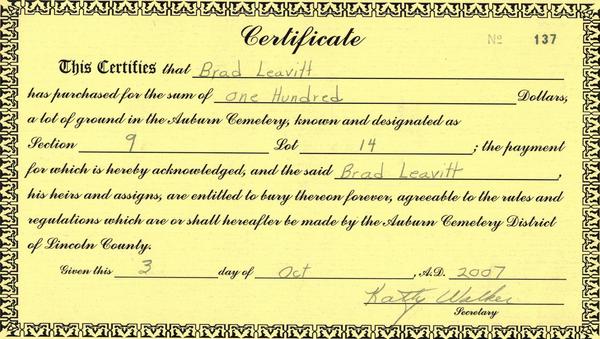 Certificate
No 137
This Certifies that Brad Leavitt
has purchased for the sum of One Hundred Dollars,
a lot of ground in the Auburn Cemetery, known and designated as
Section 9 Lot 14 ; the payment
for which is hereby acknowledged, and the said Brad Leavitt ,
his heirs and assigns, are entitled to bury thereon forever, agreeable to the rules and
regulations which are or shall hereafter be made by the Auburn Cemetery District
of Lincoln County.
Given this 3 day of Oct , A.D. 2007
Katty Walker
Secretary